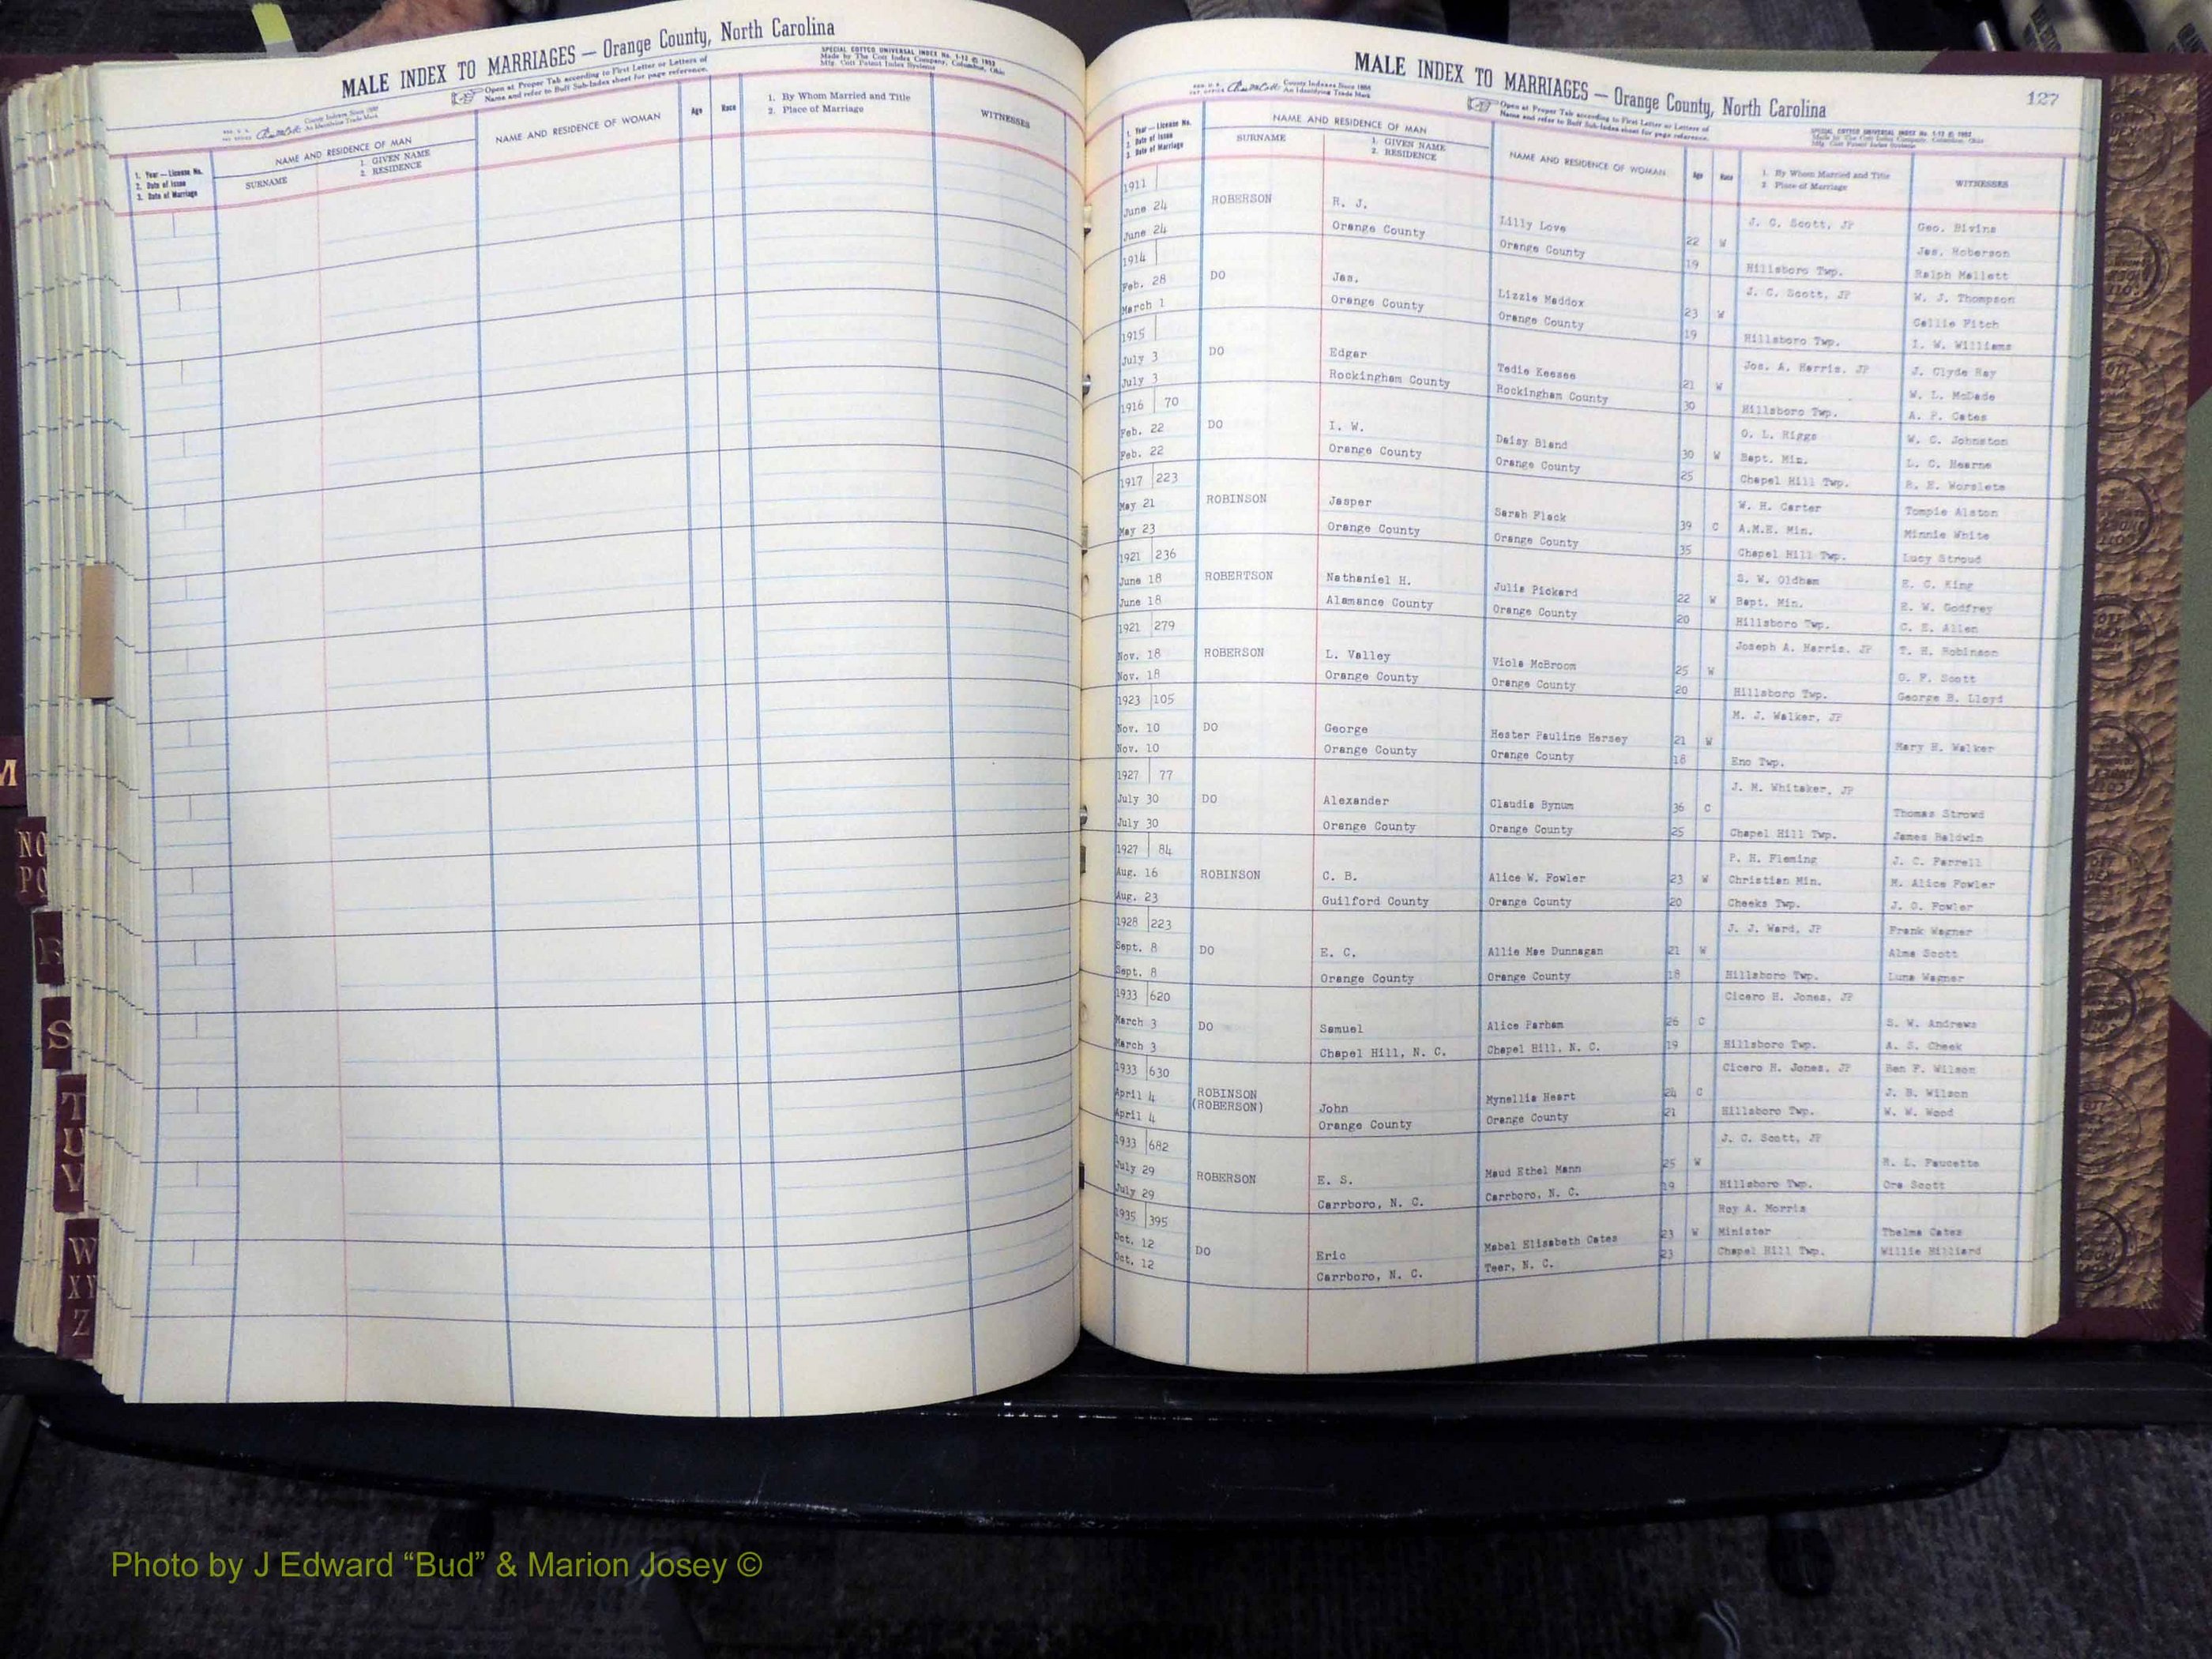 MALE INDEX TO MARRIAGES — Orange County, North Carolina
Open at Proper Tab according to First Letter or Letters of
Name and refer to Buff Sub-Index sheet for page reference.
SPECIAL COTTCO UNIVERSAL INDEX No. 1-12 © 1952
Made by The Cott Index Company, Columbus, Ohio
Mfg. Cott Patent Index Systems
County Indexes Since 1888
An Identifying Trade Mark
1. Year — License No.
2. Date of Issue
3. Date of Marriage
NAME AND RESIDENCE OF MAN
SURNAME
1. GIVEN NAME
2. RESIDENCE
NAME AND RESIDENCE OF WOMAN
Age
Race
1. By Whom Married and Title
2. Place of Marriage
WITNESSES
MALE INDEX TO MARRIAGES — Orange County, North Carolina
127
County Indexes Since 1888
An Identifying Trade Mark
Open at Proper Tab according to First Letter or Letters of
Name and refer to Buff Sub-Index sheet for page reference.
SPECIAL COTTCO UNIVERSAL INDEX No. 1-12 © 1952
Made by The Cott Index Company, Columbus, Ohio
Mfg. Cott Patent Index Systems
1. Year — License No.
2. Date of Issue
3. Date of Marriage
NAME AND RESIDENCE OF MAN
SURNAME
1. GIVEN NAME
2. RESIDENCE
NAME AND RESIDENCE OF WOMAN
Age
Race
1. By Whom Married and Title
2. Place of Marriage
WITNESSES
1911 J. C. Scott, JP Geo. Bivins
June 24 ROBERSON R. J. Lilly Love 22 W Jas. Roberson
June 24 Orange County Orange County 19 Hillsboro Twp. Ralph Mallett
1914 J. C. Scott, JP W. J. Thompson
Feb. 28 DO Jas. Lizzie Maddox 23 W Callie Fitch
March 1 Orange County Orange County 19 Hillsboro Twp. I. W. Williams
1915 Jos. A. Harris, JP J. Clyde Ray
July 3 DO Edgar Tadie Keesee 21 W W. L. McDade
July 3 Rockingham County Rockingham County 30 Hillsboro Twp. A. P. Cates
1916 70 O. L. Riggs W. C. Johnston
Feb. 22 DO I. W. Daisy Bland 30 W Bapt. Min. L. C. Hearne
Feb. 22 Orange County Orange County 25 Chapel Hill Twp. R. E. Worslete
1917 223 W. H. Carter Tompie Alston
May 21 ROBINSON Jasper Sarah Flack 39 C A.M.E. Min. Minnie White
May 23 Orange County Orange County 35 Chapel Hill Twp. Lucy Stroud
1921 236 S. W. Oldham E. C. King
June 18 ROBERTSON Nathaniel H. Julia Pickard 22 W Bapt. Min. E. W. Godfrey
June 18 Alamance County Orange County 20 Hillsboro Twp. C. E. Allen
1921 279 Joseph A. Harris, JP T. H. Robinson
Nov. 18 ROBERSON L. Valley Viola McBroom 25 W G. F. Scott
Nov. 18 Orange County Orange County 20 Hillsboro Twp. George B. Lloyd
1923 105 M. J. Walker, JP
Nov. 10 DO George Hester Pauline Hersey 21 W Mary H. Walker
Nov. 10 Orange County Orange County 18 Eno Twp.
1927 77 J. M. Whitaker, JP
July 30 DO Alexander Claudia Bynum 36 C Thomas Strowd
July 30 Orange County Orange County 25 Chapel Hill Twp. James Baldwin
1927 84 P. H. Fleming J. C. Farrell
Aug. 16 ROBINSON C. B. Alice W. Fowler 23 W Christian Min. M. Alice Fowler
Aug. 23 Guilford County Orange County 20 Cheeks Twp. J. O. Fowler
1928 223 J. J. Ward, JP Frank Wagner
Sept. 8 DO E. C. Allie Mae Dunnagan 21 W Alma Scott
Sept. 8 Orange County Orange County 18 Hillsboro Twp. Luna Wagner
1933 620 Cicero H. Jones, JP
March 3 DO Samuel Alice Parham 26 C S. W. Andrews
March 3 Chapel Hill, N. C. Chapel Hill, N. C. 19 Hillsboro Twp. A. S. Cheek
1933 630 Cicero H. Jones, JP Ben F. Wilson
April 4 ROBINSON (ROBERSON) John Mynellia Heart 24 C J. B. Wilson
April 4 Orange County Orange County 21 Hillsboro Twp. W. W. Wood
1933 682 J. C. Scott, JP
July 29 ROBERSON E. S. Maud Ethel Mann 25 W R. L. Faucette
July 29 Carrboro, N. C. Carrboro, N. C. 19 Hillsboro Twp. Ora Scott
1935 395 Roy A. Morris
Oct. 12 DO Eric Mabel Elizabeth Cates 23 W Minister Thelma Cates
Oct. 12 Carrboro, N. C. Teer, N. C. 23 Chapel Hill Twp. Willie Hilliard
M
NO
PQ
R
S
T
U
V
W
XY
Z
Photo by J Edward “Bud” & Marion Josey ©